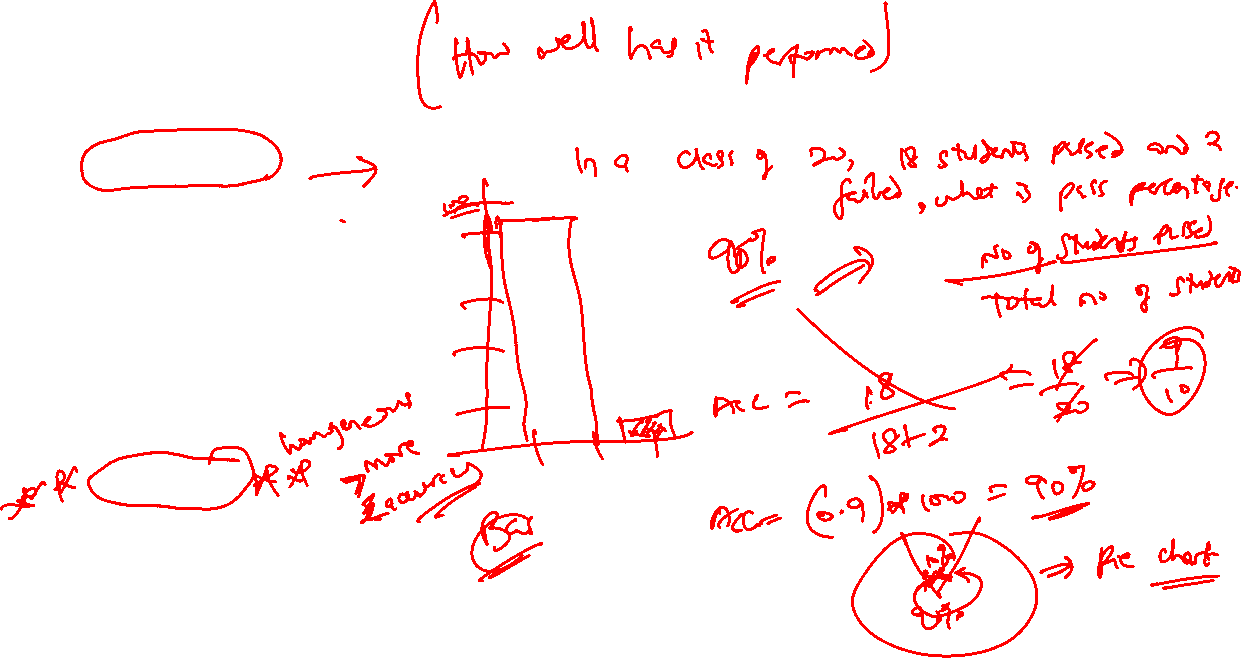 (How well has it performed)
In a class of 20, 18 students passed and 2
failed, what is pass percentage.
100
90%
No of students passed
Total no of students
Acc = 18
18+2
= 18
20
= 9
10
more
Acc = (0.9) × 100 = 90%
Bar
10%
90%
→ Pie chart